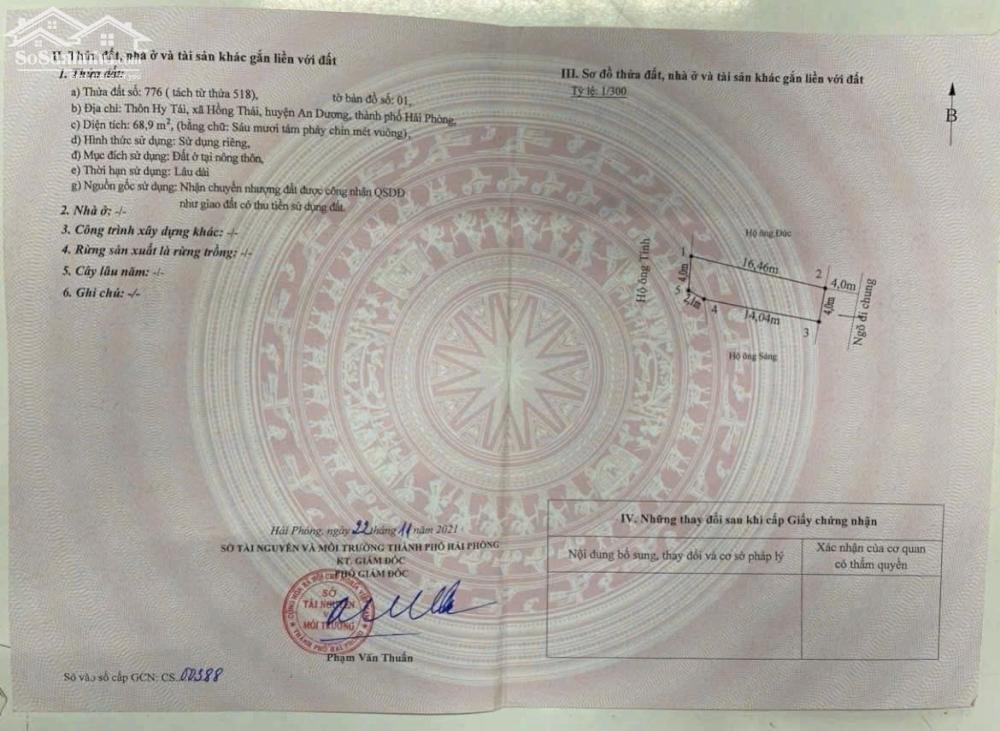 II. Thửa đất, nhà ở và tài sản khác gắn liền với đất
1. Thửa đất:
a) Thửa đất số: 776 ( tách từ thửa 518), tờ bản đồ số: 01,
b) Địa chỉ: Thôn Hy Tái, xã Hồng Thái, huyện An Dương, thành phố Hải Phòng,
c) Diện tích: 68,9 m², (bằng chữ: Sáu mươi tám phảy chín mét vuông),
d) Hình thức sử dụng: Sử dụng riêng,
đ) Mục đích sử dụng: Đất ở tại nông thôn,
e) Thời hạn sử dụng: Lâu dài
g) Nguồn gốc sử dụng: Nhận chuyển nhượng đất được công nhận QSDĐ
như giao đất có thu tiền sử dụng đất.
2. Nhà ở: -/-
3. Công trình xây dựng khác: -/-
4. Rừng sản xuất là rừng trồng: -/-
5. Cây lâu năm: -/-
6. Ghi chú: -/-
Hải Phòng, ngày 22 tháng 11 năm 2021
SỞ TÀI NGUYÊN VÀ MÔI TRƯỜNG THÀNH PHỐ HẢI PHÒNG
KT. GIÁM ĐỐC
PHÓ GIÁM ĐỐC
SỞ
TÀI NGUYÊN
VÀ
MÔI TRƯỜNG
THÀNH PHỐ HẢI PHÒNG
Phạm Văn Thuấn
Số vào sổ cấp GCN: CS 00388
III. Sơ đồ thửa đất, nhà ở và tài sản khác gắn liền với đất
Tỷ lệ: 1/300
B
Hộ ông Đức
Hộ ông Tính
1
16,46m
2
4,0m
4,0m
5
2,1m
4
14,04m
4,0m
3
Ngõ đi chung
Hộ ông Sáng
IV. Những thay đổi sau khi cấp Giấy chứng nhận
Nội dung bổ sung, thay đổi và cơ sở pháp lý
Xác nhận của cơ quan
có thẩm quyền